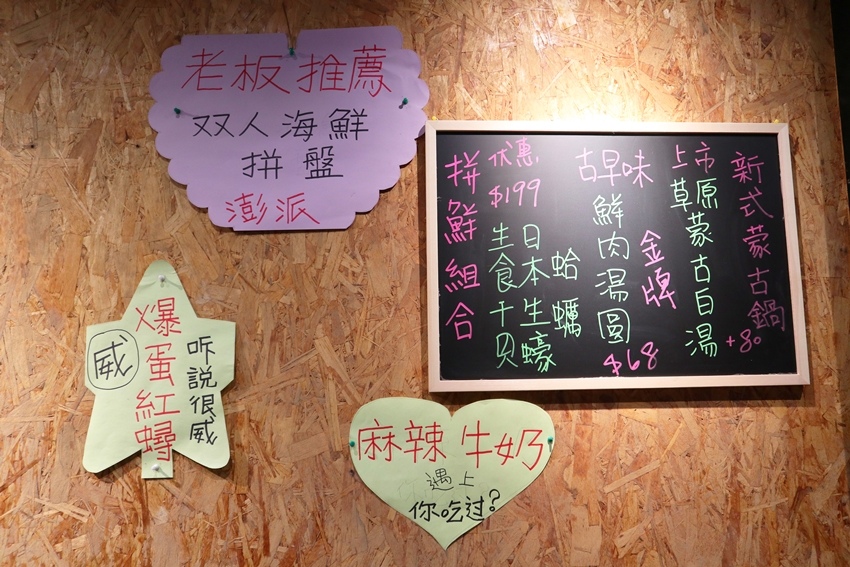 老板推薦
双人海鮮
拼盤
澎派
新式蒙古鍋
+80
上市
草原蒙古白湯
古早味
金牌
鮮肉湯圓
$68
拼鮮組合
优惠
$199
蛤蠣
日本生蠔
生食干贝
爆蛋紅蟳
威
听說很威
麻辣牛奶
遇上
你吃过?